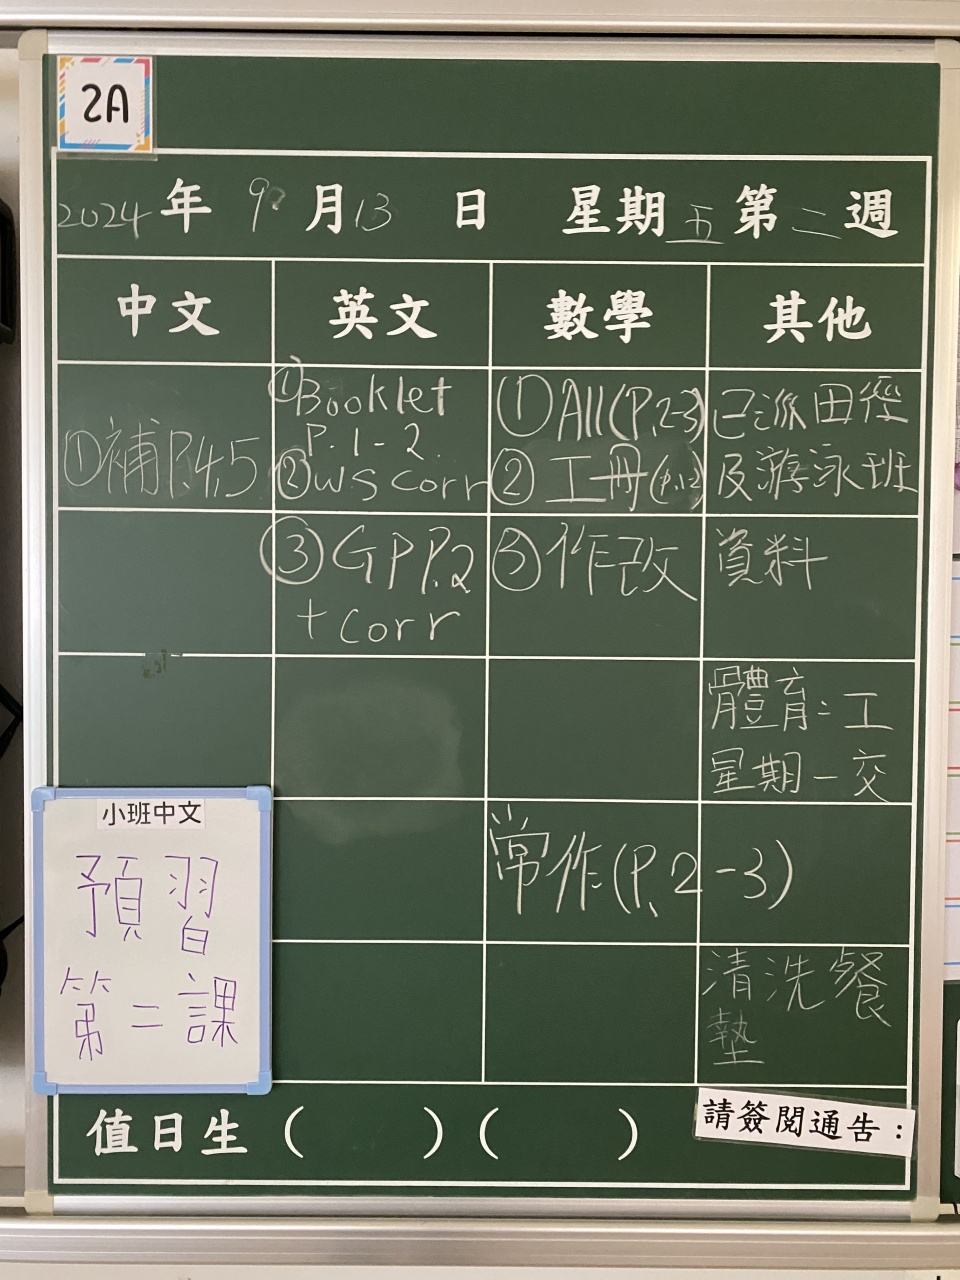 2A
2024年 9月13日 星期五第二週
中文 英文 數學 其他
①補P.4,5
①Booklet
P.1-2
②WS Corr
③GP P.2
+ Corr
①A11(P.2-3)
②工冊(P.1,2)
③作改
已派田徑
及游泳班
資料
體育=工
星期一交
常作(P.2-3)
清洗餐
墊
小班中文
預習
第二課
值日生 ( ) ( )
請簽閱通告：